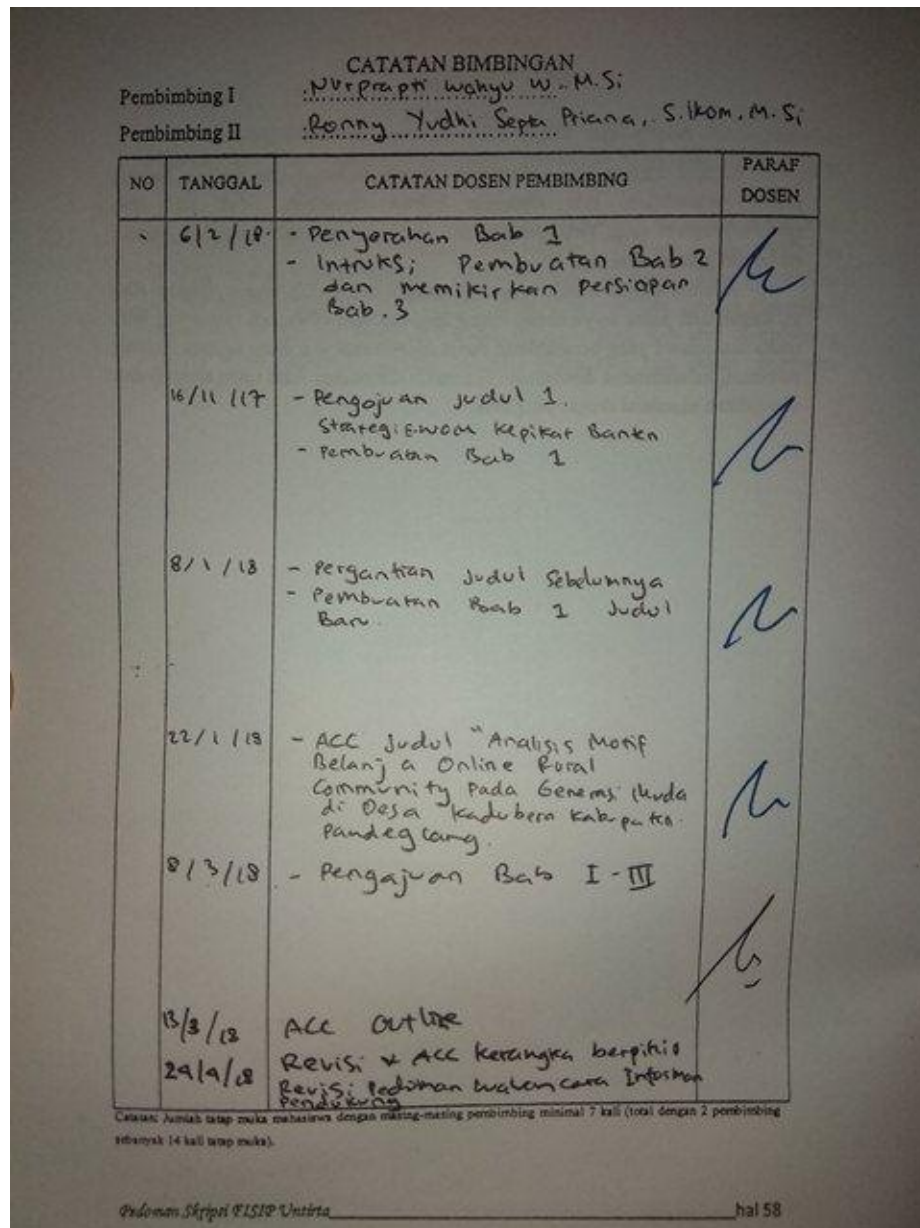 CATATAN BIMBINGAN
Pembimbing I : Nurprapti Wahyu W. M.Si
Pembimbing II : Ronny Yudhi Septa Priana, S.Ikom, M.Si
NO TANGGAL CATATAN DOSEN PEMBIMBING PARAF DOSEN
6/2/18 - Penyerahan Bab 1
- Intruksi Pembuatan Bab 2
dan memikirkan persiapan
Bab.3
16/11/17 - Pengajuan judul 1.
Strategi Ewom Banten
- Pembuatan Bab 1
8/1/18 - Pergantian Judul Sebelumnya
- Pembuatan Bab 1 Judul
Baru.
22/1/18 - ACC Judul "Analisis Motif
Belanja Online Rural
Community Pada Generasi Muda
di Desa Kadubera Kabupaten
Pandeglang.
8/3/18 - Pengajuan Bab I - III
13/3/18 ACC Outline
24/4/18 Revisi & ACC kerangka berpikir
Revisi Pedoman wawancara Informan
Pendukung
Catatan: Jumlah tatap muka mahasiswa dengan masing-masing pembimbing minimal 7 kali (total dengan 2 pembimbing
sebanyak 14 kali tatap muka).
Pedoman Skripsi FISIP Untirta hal 58